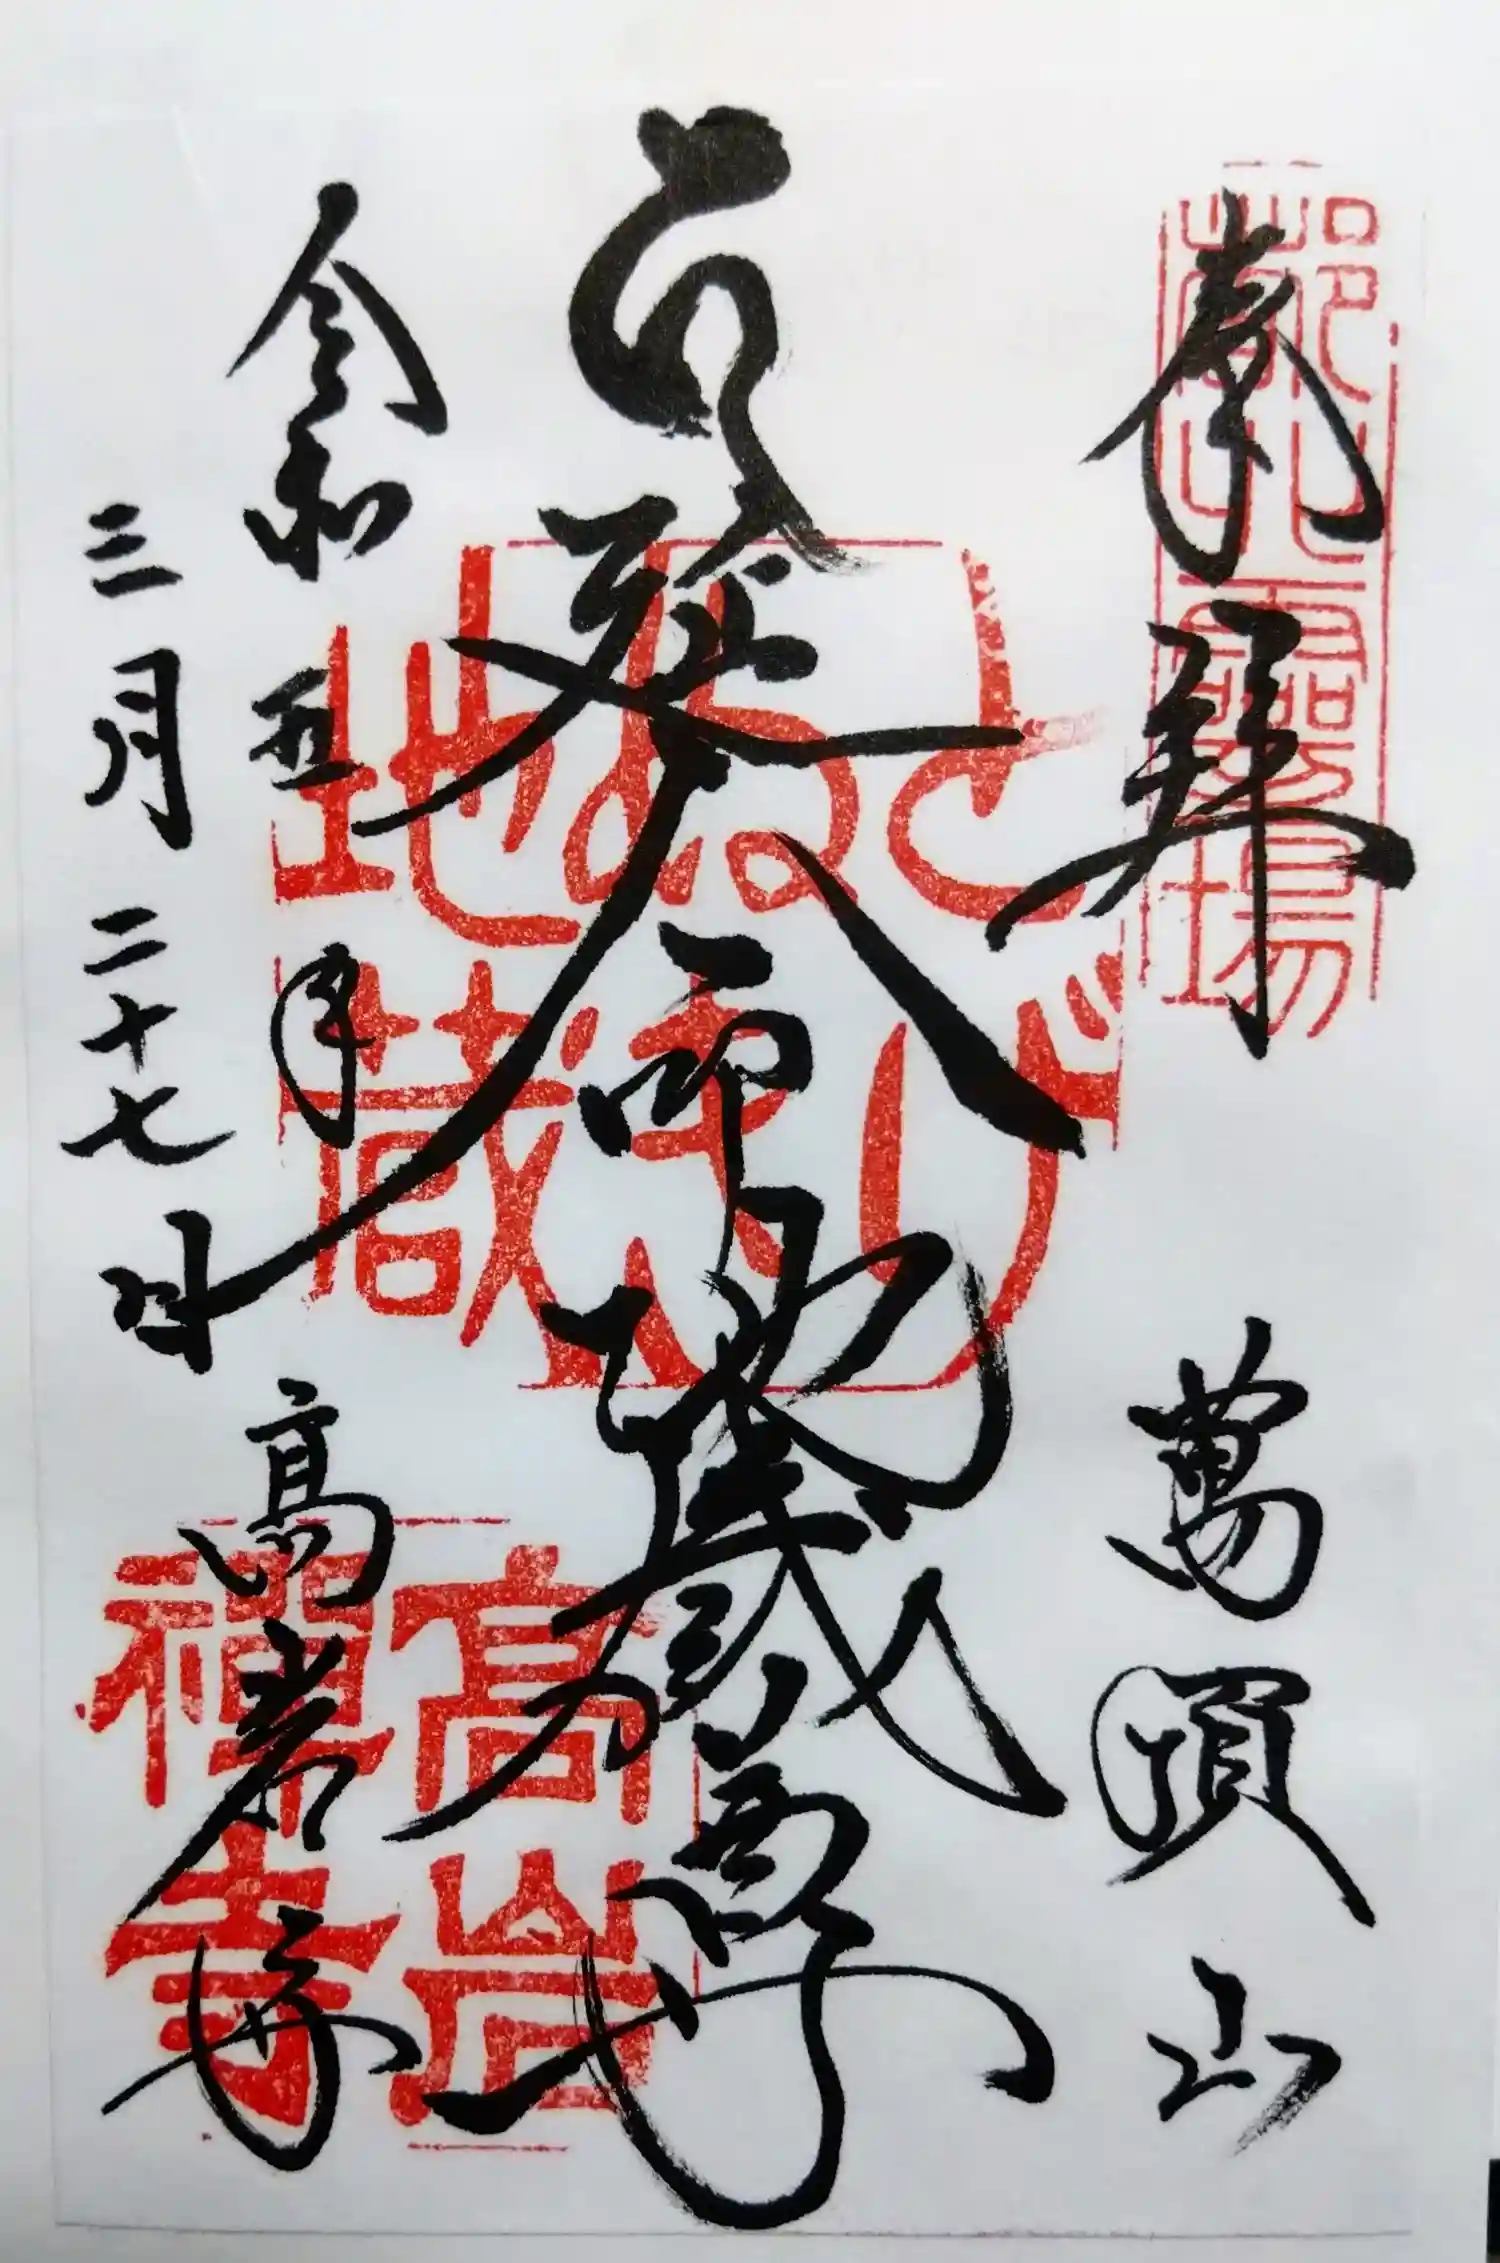 奉拝
萬頂山
都北靈場
延命地蔵尊
とげ
ぬき
地蔵
令和五年
三月二十七日
高岩寺
高岩
禅寺